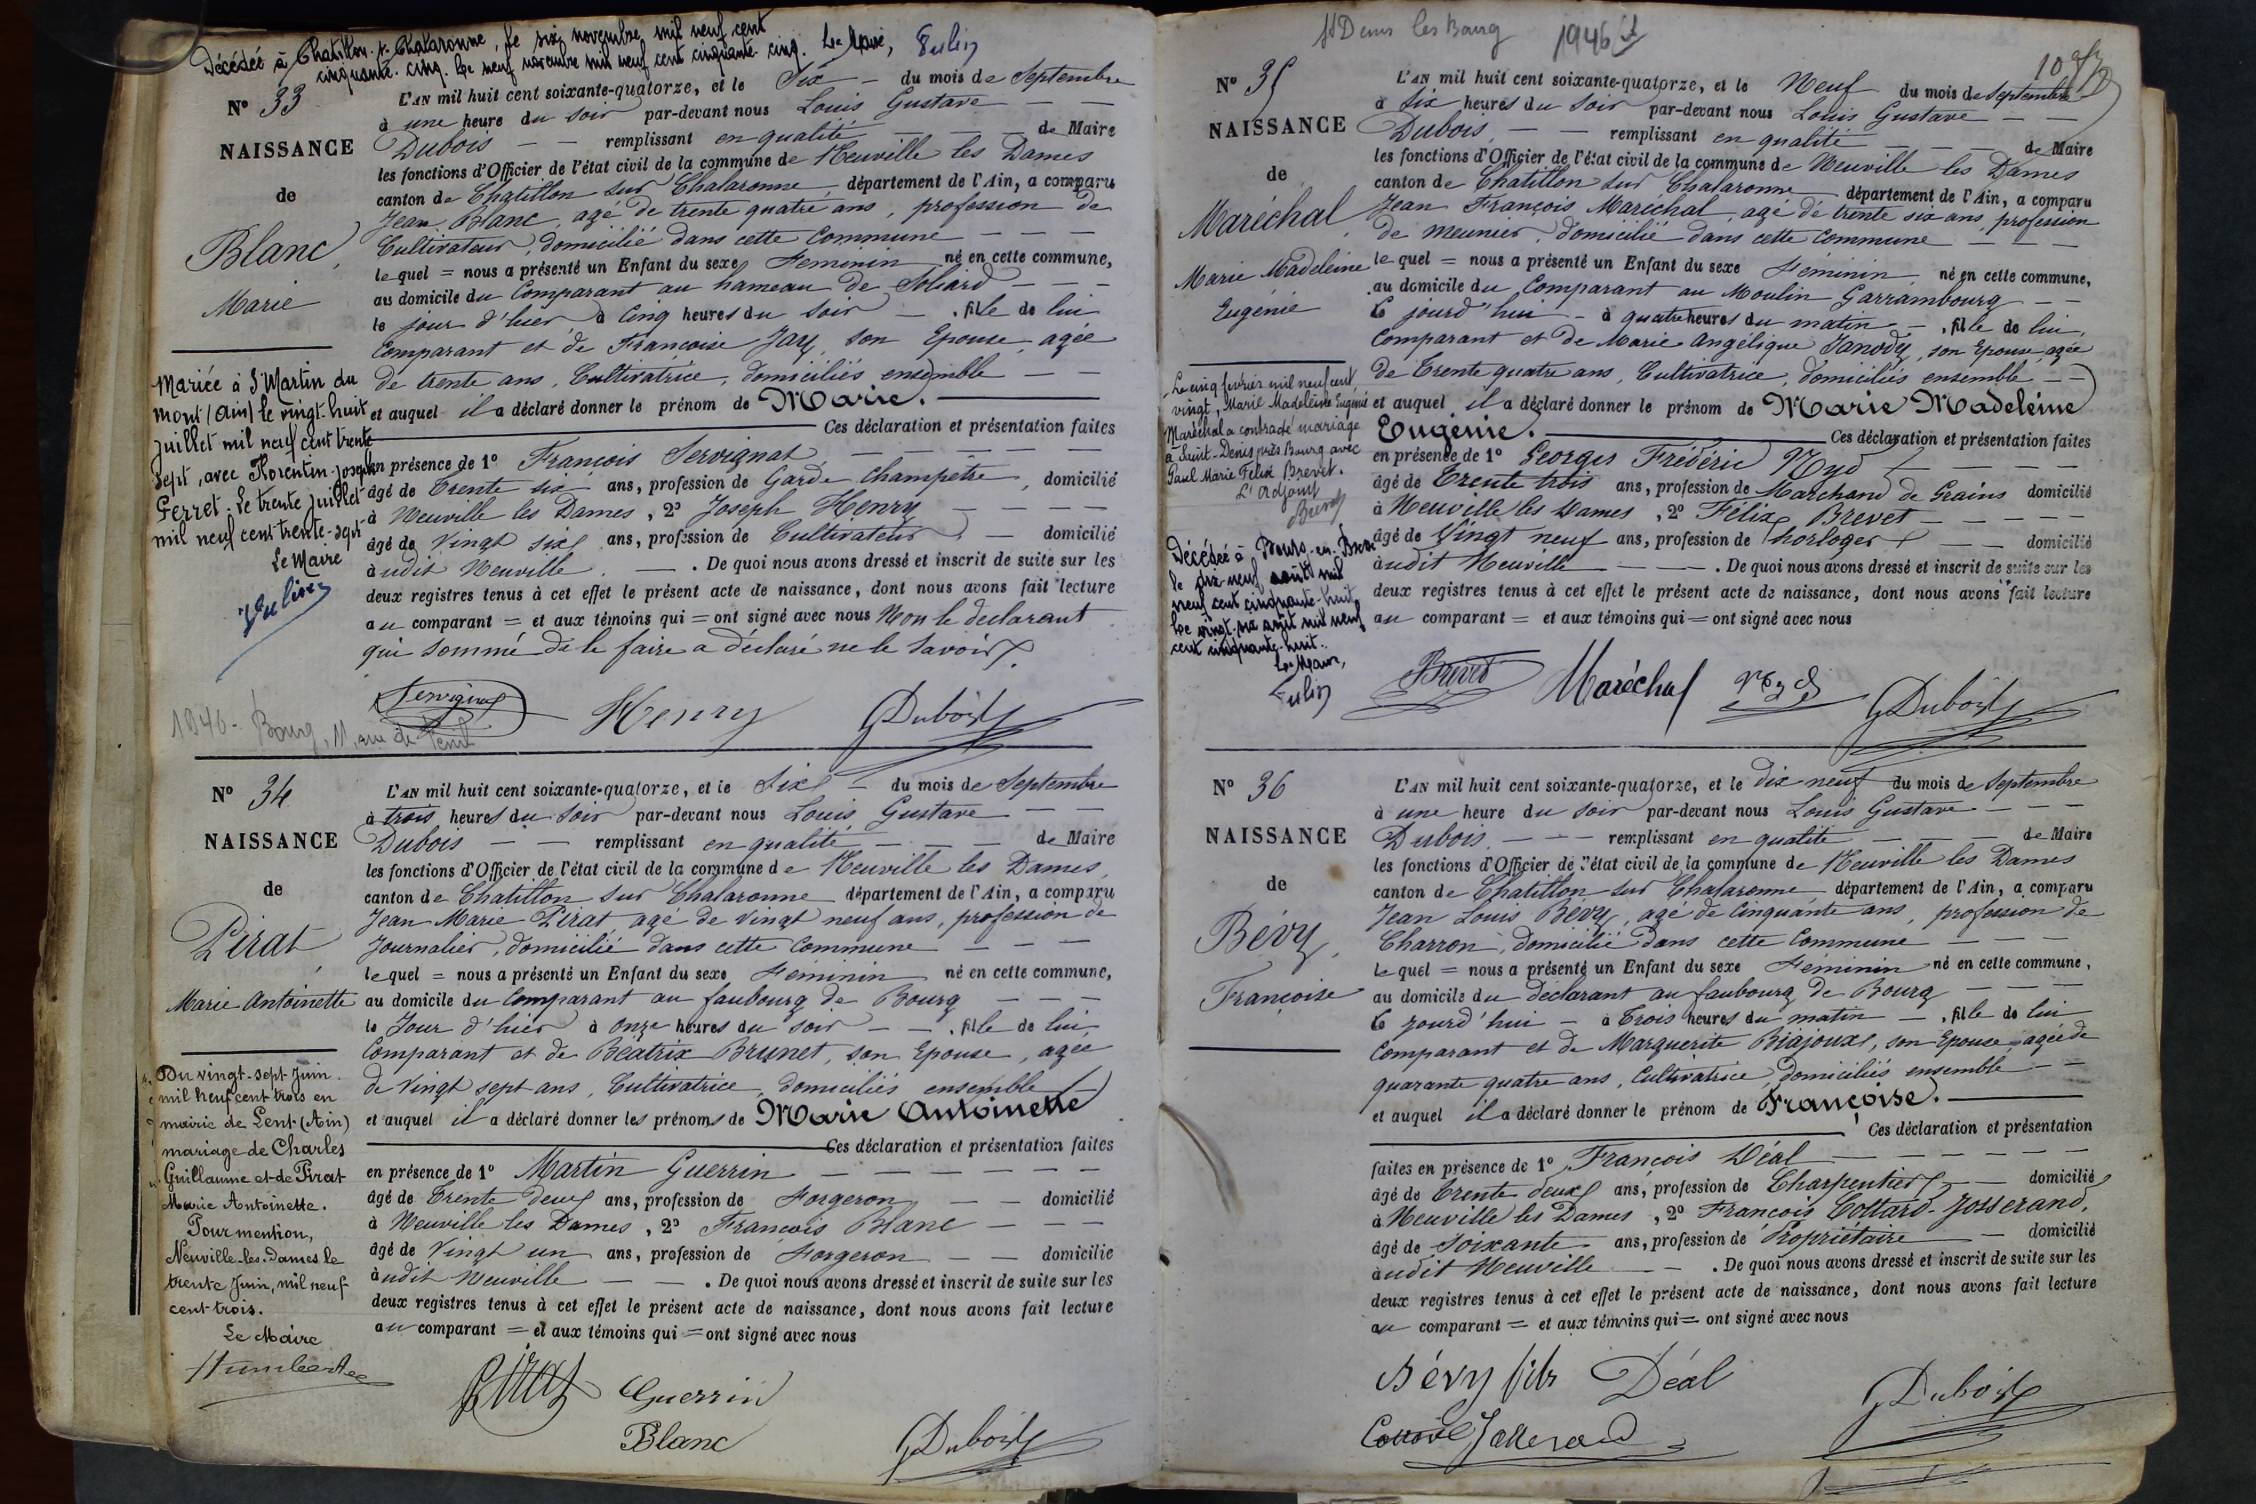 Décédée à Chatillon s. Chalaronne, le six novembre mil neuf cent
cinquante-cinq. Le neuf novembre mil neuf cent cinquante-cinq. Le Maire,
N° 33
NAISSANCE
de
Blanc,
Marie
Mariée à St Martin du
mont (Ain) le vingt-huit
juillet mil neuf cent trente
sept, avec Florentin-Joseph
Perret. Le trente juillet
mil neuf cent trente-sept
Le Maire
L'AN mil huit cent soixante-quatorze, et le Six du mois de Septembre
à une heure du soir par-devant nous Louis Gustave
Dubois remplissant en qualité de Maire
les fonctions d'Officier de l'état civil de la commune de Neuville les Dames
canton de Chatillon sur Chalaronne département de l'Ain, a comparu
Jean Blanc, agé de trente quatre ans, profession de
Cultivateur, domicilié dans cette Commune
lequel = nous a présenté un Enfant du sexe Feminin né en cette commune,
au domicile du Comparant au hameau de
le jour d'hier à Cinq heures du soir, fille de lui
Comparant et de Françoise Jay, son Epouse, agée
de trente ans, Cultivatrice, domiciliés ensemble
et auquel il a déclaré donner le prénom de Marie.
Ces déclaration et présentation faites
en présence de 1° François Servignat
âgé de Trente six ans, profession de Garde Champêtre, domicilié
à Neuville les Dames, 2° Joseph Henry
âgé de Vingt six ans, profession de Cultivateur domicilié
audit Neuville. De quoi nous avons dressé et inscrit de suite sur les
deux registres tenus à cet effet le présent acte de naissance, dont nous avons fait lecture
au comparant = et aux témoins qui = ont signé avec nous Non le declarant
qui sommé de le faire a déclaré ne le savoir.
Servignat Henry GDubois
1946 - Bourg, 11, rue du
N° 34
NAISSANCE
de
Pirat,
Marie Antoinette
Du vingt-sept Juin
mil neuf cent trois en
mairie de Lent (Ain)
mariage de Charles
Guillaume et de Pirat
Marie Antoinette.
Pour mention,
Neuville-les-Dames le
trente Juin, mil neuf
cent-trois.
Le Maire
L'AN mil huit cent soixante-quatorze, et le Six du mois de Septembre
à trois heures du soir par-devant nous Louis Gustave
Dubois remplissant en qualité de Maire
les fonctions d'Officier de l'état civil de la commune de Neuville les Dames,
canton de Chatillon sur Chalaronne département de l'Ain, a comparu
Jean Marie Pirat, agé de vingt neuf ans, profession de
Journalier, domicilié dans cette Commune
lequel = nous a présenté un Enfant du sexe Féminin né en cette commune,
au domicile du Comparant au faubourg de Bourg
le Jour d'hier à Onze heures du soir, fille de lui
Comparant et de Béatrix Brunet, son Epouse, agée
de Vingt sept ans, Cultivatrice, domiciliés ensemble
et auquel il a déclaré donner les prénoms de Marie Antoinette
Ces déclaration et présentation faites
en présence de 1° Martin Guerrin
âgé de Trente deux ans, profession de Forgeron domicilié
à Neuville les Dames, 2° François Blanc
âgé de Vingt un ans, profession de Forgeron domicilié
audit Neuville. De quoi nous avons dressé et inscrit de suite sur les
deux registres tenus à cet effet le présent acte de naissance, dont nous avons fait lecture
au comparant = et aux témoins qui = ont signé avec nous
Pirat Guerrin
Blanc GDubois
St Denis les Bourg 1946
10
N° 35
NAISSANCE
de
Maréchal,
Marie Madeleine
Eugénie
Le cinq février mil neuf cent
vingt, Marie Madeleine Eugénie
Maréchal a contracté mariage
à Saint-Denis près Bourg avec
Paul Marie Félix Brevet.
L'Adjoint
Décédée à Bourg-en-Bresse
le dix-neuf août mil
neuf cent cinquante-huit
Le vingt-six août mil neuf
cent cinquante-huit.
Le Maire,
L'AN mil huit cent soixante-quatorze, et le Neuf du mois de Septembre
à Six heures du soir par-devant nous Louis Gustave
Dubois, remplissant en qualité de Maire
les fonctions d'Officier de l'état civil de la commune de Neuville les Dames
canton de Chatillon sur Chalaronne département de l'Ain, a comparu
Jean François Maréchal, agé de trente six ans, profession
de Meunier, domicilié dans cette Commune
lequel = nous a présenté un Enfant du sexe Féminin né en cette commune,
au domicile du Comparant au Moulin Garrambourg
Ce jourd'hui à quatre heures du matin, fille de lui,
Comparant et de Marie Angélique Janody, son Epouse, agée
de Trente quatre ans, Cultivatrice, domiciliés ensemble
et auquel il a déclaré donner le prénom de Marie Madeleine
Eugénie. Ces déclaration et présentation faites
en présence de 1° Georges Frédéric Nyd
âgé de Trente trois ans, profession de Marchand de Grains domicilié
à Neuville les Dames, 2° Félix Brevet
âgé de Vingt neuf ans, profession de horloger domicilié
audit Neuville. De quoi nous avons dressé et inscrit de suite sur les
deux registres tenus à cet effet le présent acte de naissance, dont nous avons fait lecture
au comparant = et aux témoins qui = ont signé avec nous
Brevet Maréchal Nyd GDubois
N° 36
NAISSANCE
de
Bévy,
Françoise
L'AN mil huit cent soixante-quatorze, et le dix neuf du mois de Septembre
à une heure du soir par-devant nous Louis Gustave
Dubois, remplissant en qualité de Maire
les fonctions d'Officier de l'état civil de la commune de Neuville les Dames
canton de Chatillon sur Chalaronne département de l'Ain, a comparu
Jean Louis Bévy, agé de Cinquante ans, profession de
Charron, domicilié dans cette Commune
lequel = nous a présenté un Enfant du sexe Féminin né en cette commune,
au domicile du déclarant au faubourg de Bourg
Ce jourd'hui à Trois heures du matin, fille de lui
Comparant et de Marguerite Biajoux, son Epouse, agée de
quarante quatre ans, Cultivatrice, domiciliés ensemble
et auquel il a déclaré donner le prénom de Françoise.
Ces déclaration et présentation
faites en présence de 1° François Déal
âgé de Trente deux ans, profession de Charpentier domicilié
à Neuville les Dames, 2° François Cottard-Josserand,
âgé de Soixante ans, profession de Propriétaire domicilié
audit Neuville. De quoi nous avons dressé et inscrit de suite sur les
deux registres tenus à cet effet le présent acte de naissance, dont nous avons fait lecture
au comparant = et aux témoins qui = ont signé avec nous
Bévy fils Déal GDubois